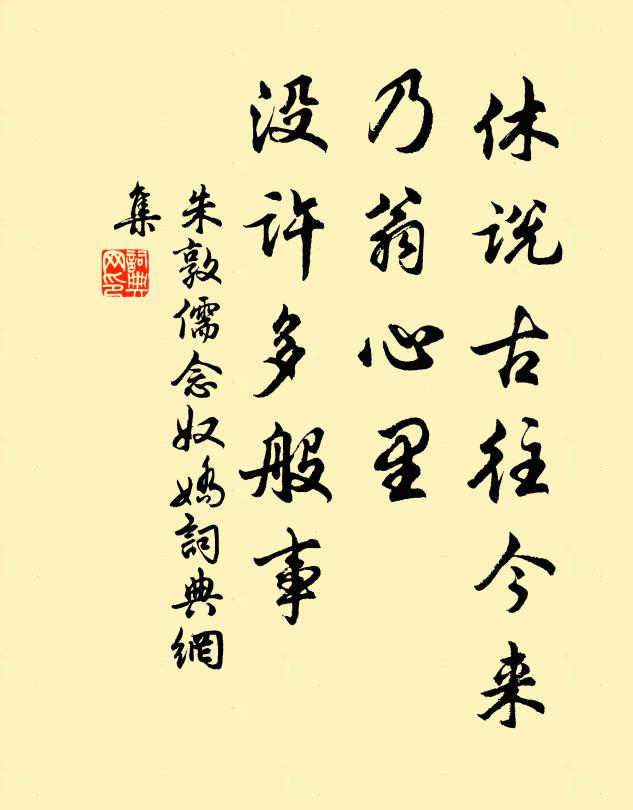 休说古往今来
乃翁心里
没许多般事
朱敦儒念奴娇詞典網
集
詞典
网印